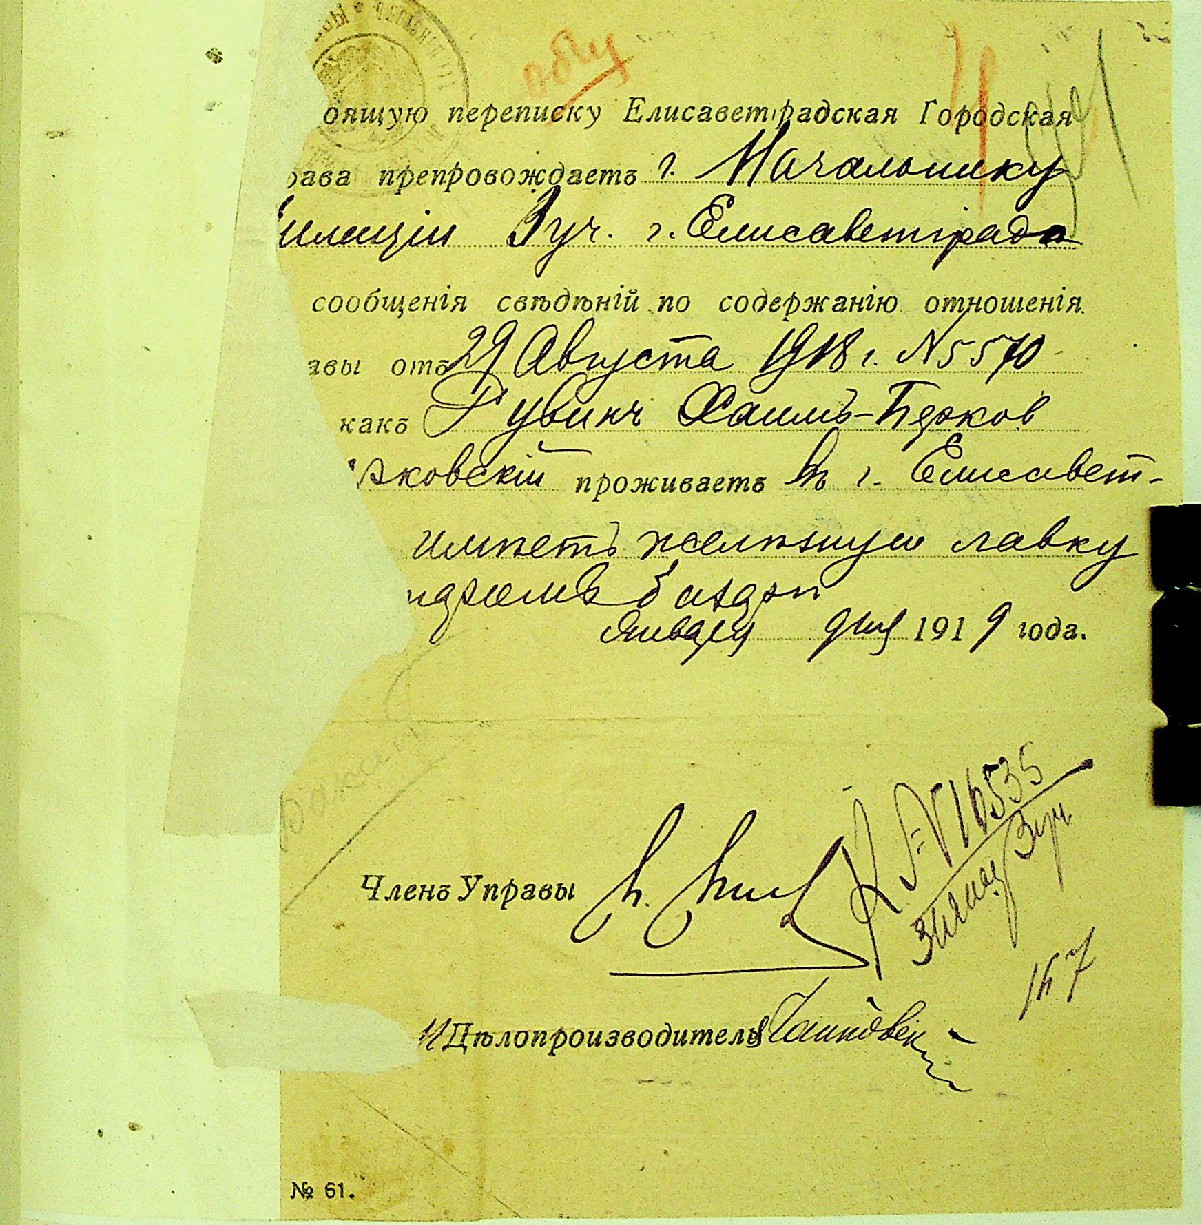 оящую переписку Елисаветградская Городская
рава препровождаетъ г. Начальнику
Милиціи 3 уч. г. Елисаветграда
сообщенія свѣдѣній по содержанію отношенія
авы отъ 29 Августа 1918 г. № 5570
какъ Рувинъ Хаимъ-Берков
яковскій проживаетъ въ г. Елисавет-
имѣетъ желѣзную лавку
Января дня 1919 года.
К. № 16535
3 уч.
Членъ Управы
Дѣлопроизводитель
№ 61.